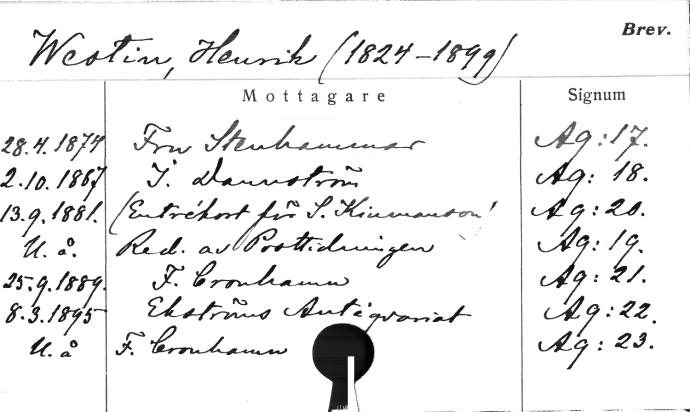 Brev.
Westin, Henrik (1824-1899)
Mottagare Signum
28.4.1874 Fru Stenhammar Ag:17.
2.10.1867 I. Dannström Ag: 18.
13.9.1881. (Entrékort för S. Kinmanson) Ag:20.
U.å. Red. av Posttidningen Ag:19.
25.9.1889. F. Cronhamn Ag:21.
8.3.1895 Ekströms Antiqvariat Ag:22.
U.å F. Cronhamn Ag:23.